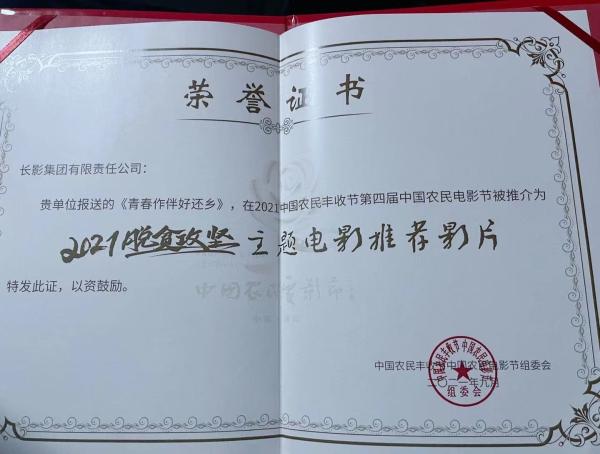 荣誉证书
长影集团有限责任公司：
贵单位报送的《青春作伴好还乡》，在2021中国农民丰收节第四届中国农民电影节被推介为
2021脱贫攻坚主题电影推荐影片
特发此证，以资鼓励。
中国农民电影节
中国农民丰收节中国农民电影节组委会
二〇二一年九月
中国农民丰收节中国农民电影节
组委会